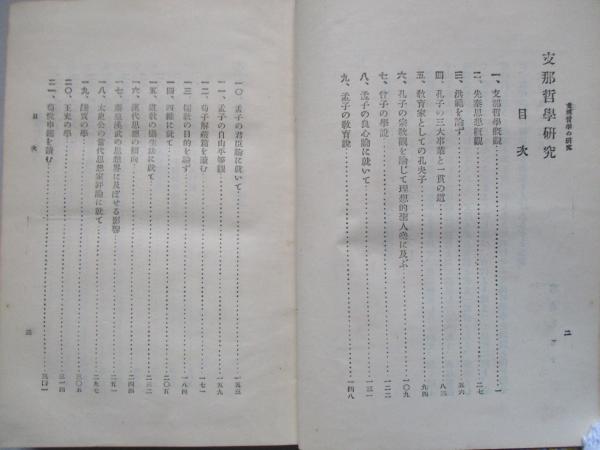 支那哲學の研究
支那哲學研究
目次
一、支那哲學概觀 一
二、先秦思想概觀 二七
三、洪範を論ず 五六
四、孔子の三大事業と一貫の道 八三
五、敎育家としての孔夫子 九四
六、孔子の宗敎觀を論じて理想的聖人に及ぶ 一〇九
七、曾子の學說 一二二
八、孟子の良心論に就いて 一三一
九、孟子の敎育說 一四八
二
一〇、孟子の君臣論に就いて 一五三
一一、孟子の自由平等觀 一五九
一二、荀子解蔽篇を讀む 一七一
一三、儒敎の目的を論ず 一八四
一四、四維に就て 二〇五
一五、道敎の攝生法に就て 二三二
一六、漢代思想の傾向 二四四
一七、秦皇漢武の思想界に及ぼせる影響 二五一
一八、太史公の當代思想家評論に就て 二九七
一九、の學 三〇五
二〇、王充の學 三一四
二一、を讀む 三四一
目次
三